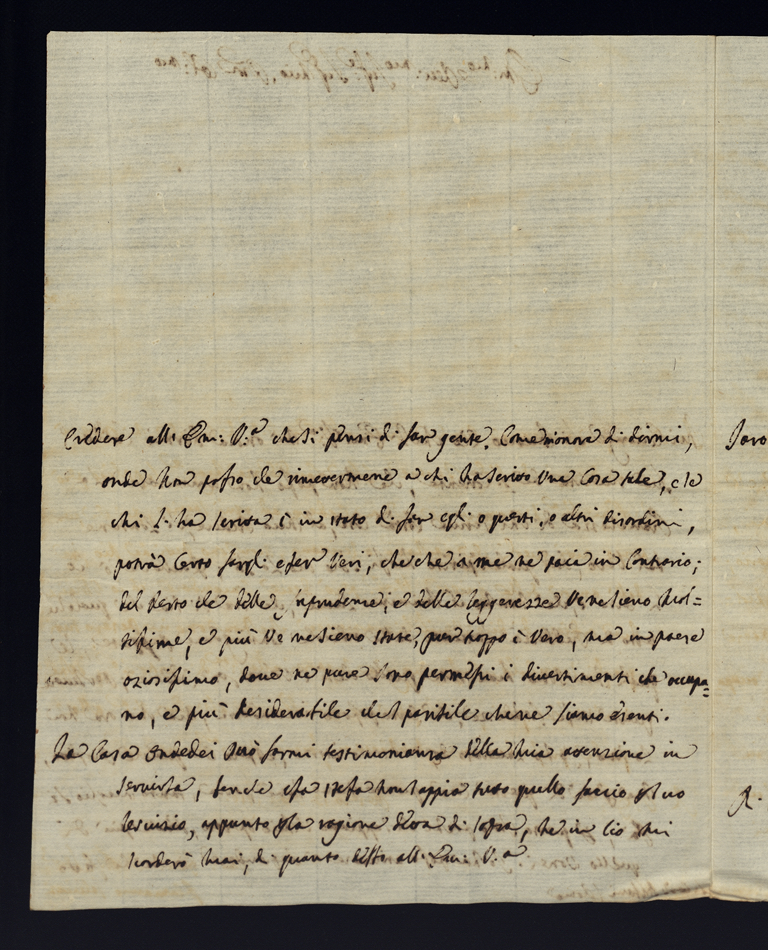 credere all: Em: V:a che si pensi di far gente, Come mi onora di dirmi,
onde non posso che rimettermene a chi ha scritto una cosa tale, e se
chi l'ha scritta è in stato di far egli o questi, o altri disordini,
potrà certo fargli esser veri, che che a me ne paia in contrario;
del resto che delle imprudenze, e delle leggerezze ve ne sieno mol=
tissime, e più ve ne sieno state, pur troppo è vero, ma in paese
oziosissimo, dove ne pure sono permessi i divertimenti che occupa=
no, è più desiderabile che possibile che ne siamo esenti.
La Casa Ondedei può farmi testimonianza della mia attenzione in
servirla, benche essa stessa non sappia tutto quello faccio per suo
servizio, appunto per la ragione detta di sopra, ne in ciò mi
scorderò mai, di quanto debbo all: Em: V:a